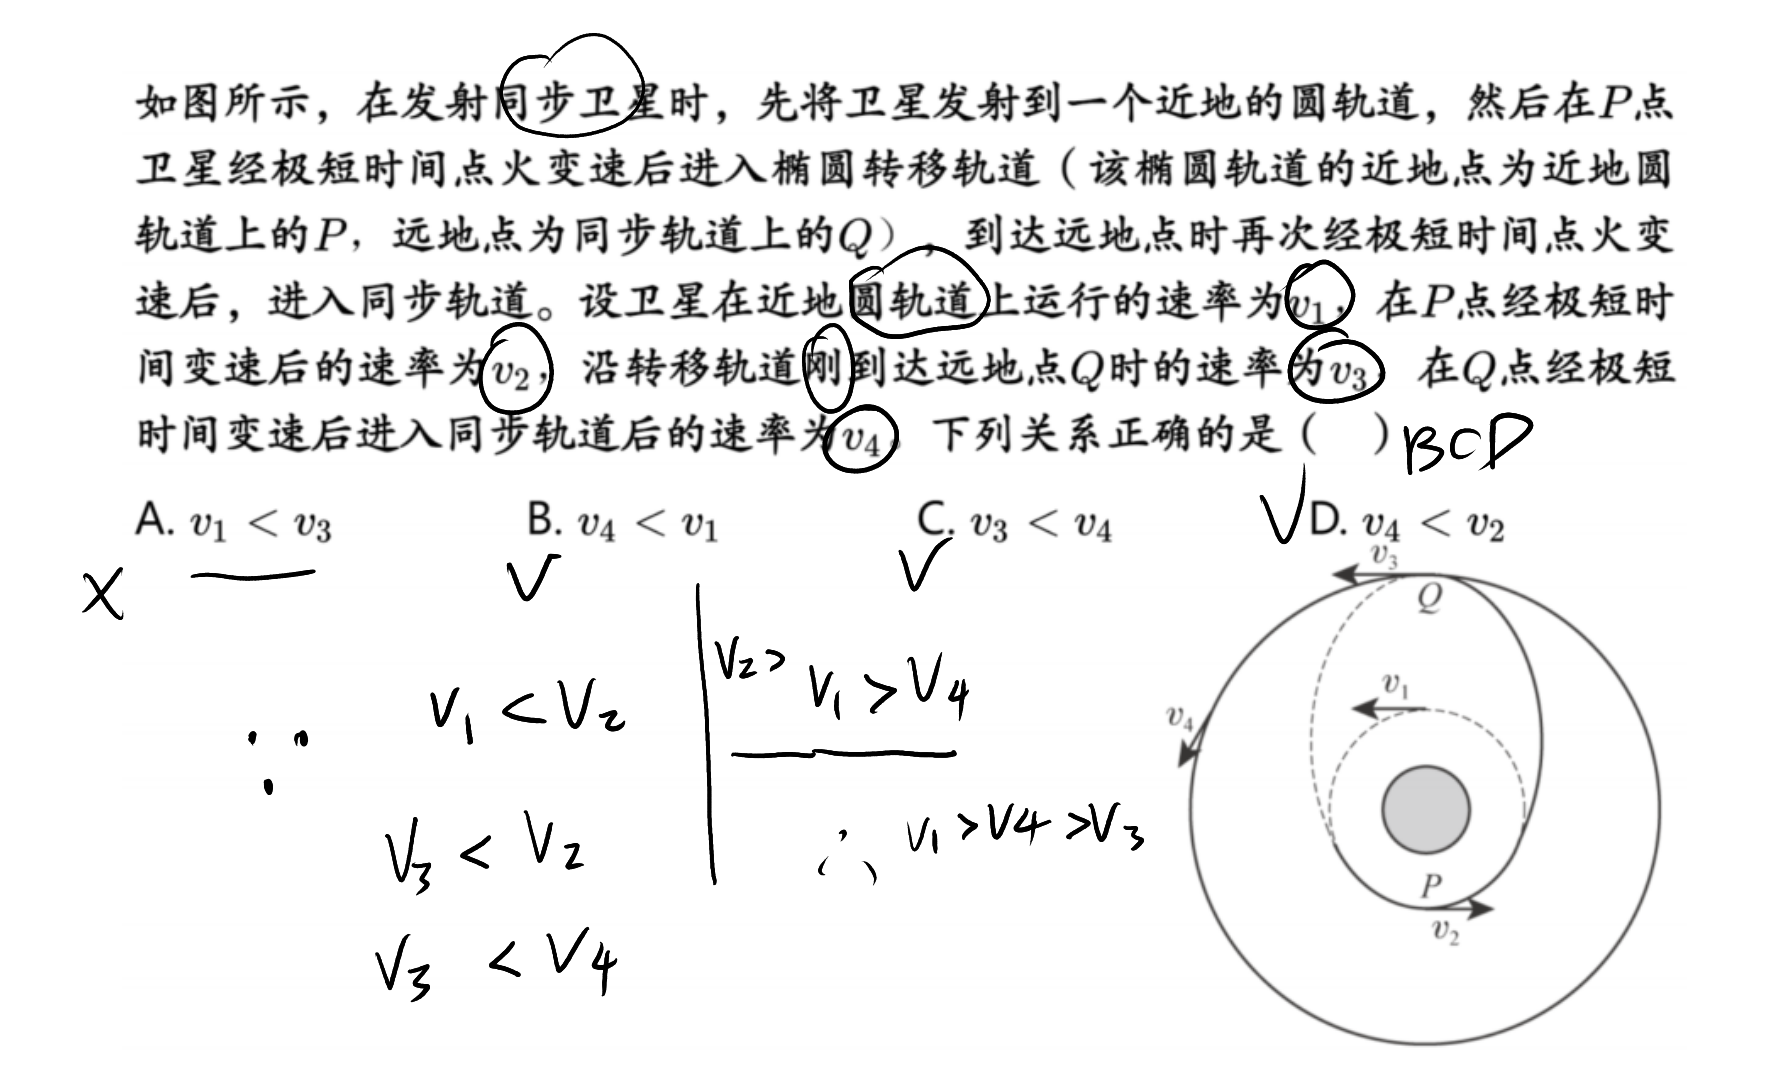 如图所示，在发射同步卫星时，先将卫星发射到一个近地的圆轨道，然后在P点
卫星经极短时间点火变速后进入椭圆转移轨道（该椭圆轨道的近地点为近地圆
轨道上的P，远地点为同步轨道上的Q），到达远地点时再次经极短时间点火变
速后，进入同步轨道。设卫星在近地圆轨道上运行的速率为v₁，在P点经极短时
间变速后的速率为v₂，沿转移轨道刚到达远地点Q时的速率为v₃，在Q点经极短
时间变速后进入同步轨道后的速率为v₄。下列关系正确的是（ ）BCD
A. v₁ < v₃ B. v₄ < v₁ C. v₃ < v₄ √ D. v₄ < v₂
× √ √
∵ V₁ < V₂
V₃ < V₂
V₃ < V₄
V₂ > V₁ > V₄
∴ V₁ > V₄ > V₃
v₃
Q
v₁
v₄
P
v₂